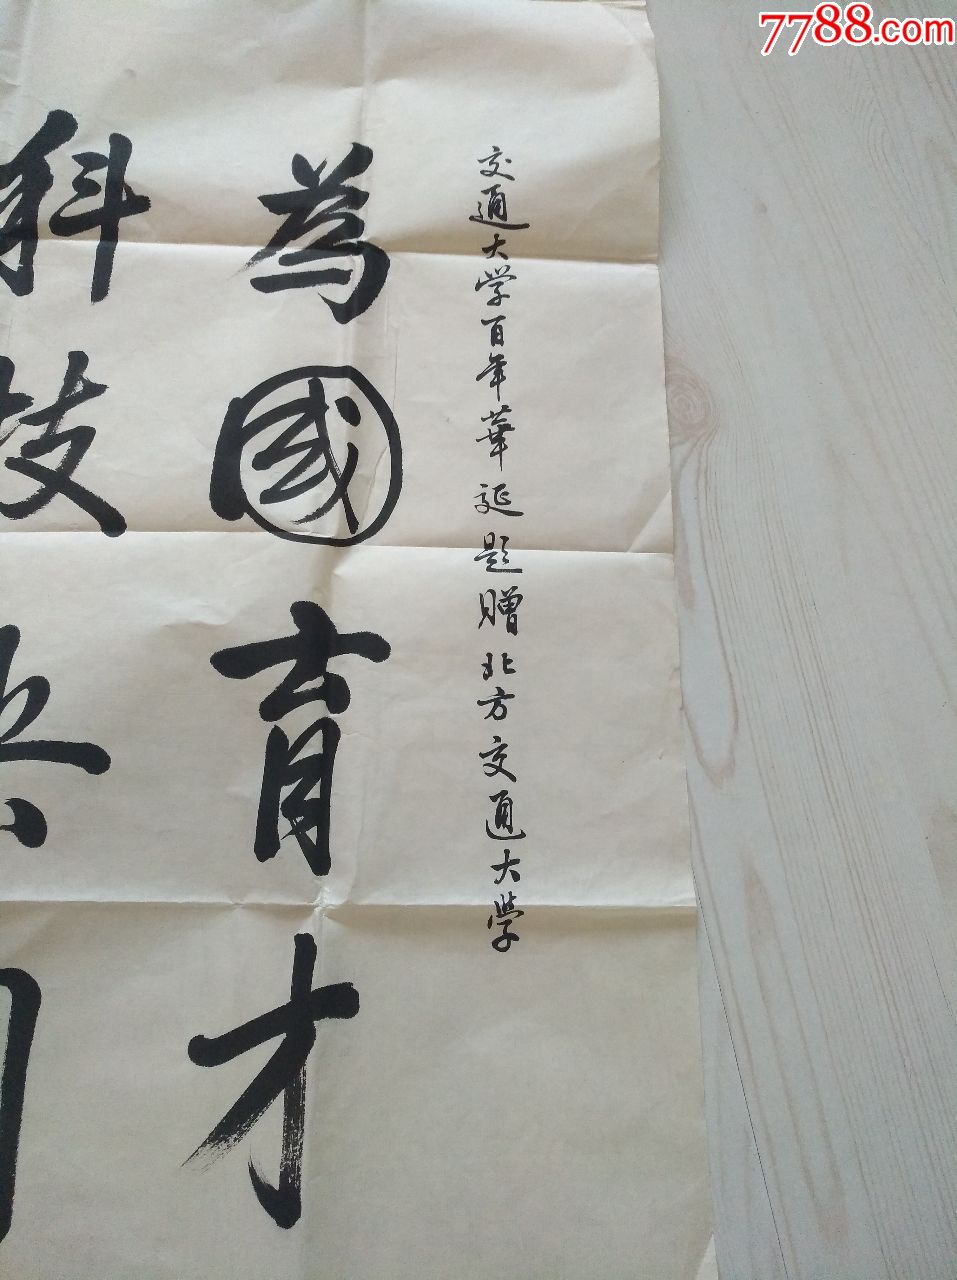 7788.com
交通大学百年華延題贈北方交通大学
為國育才
科技興